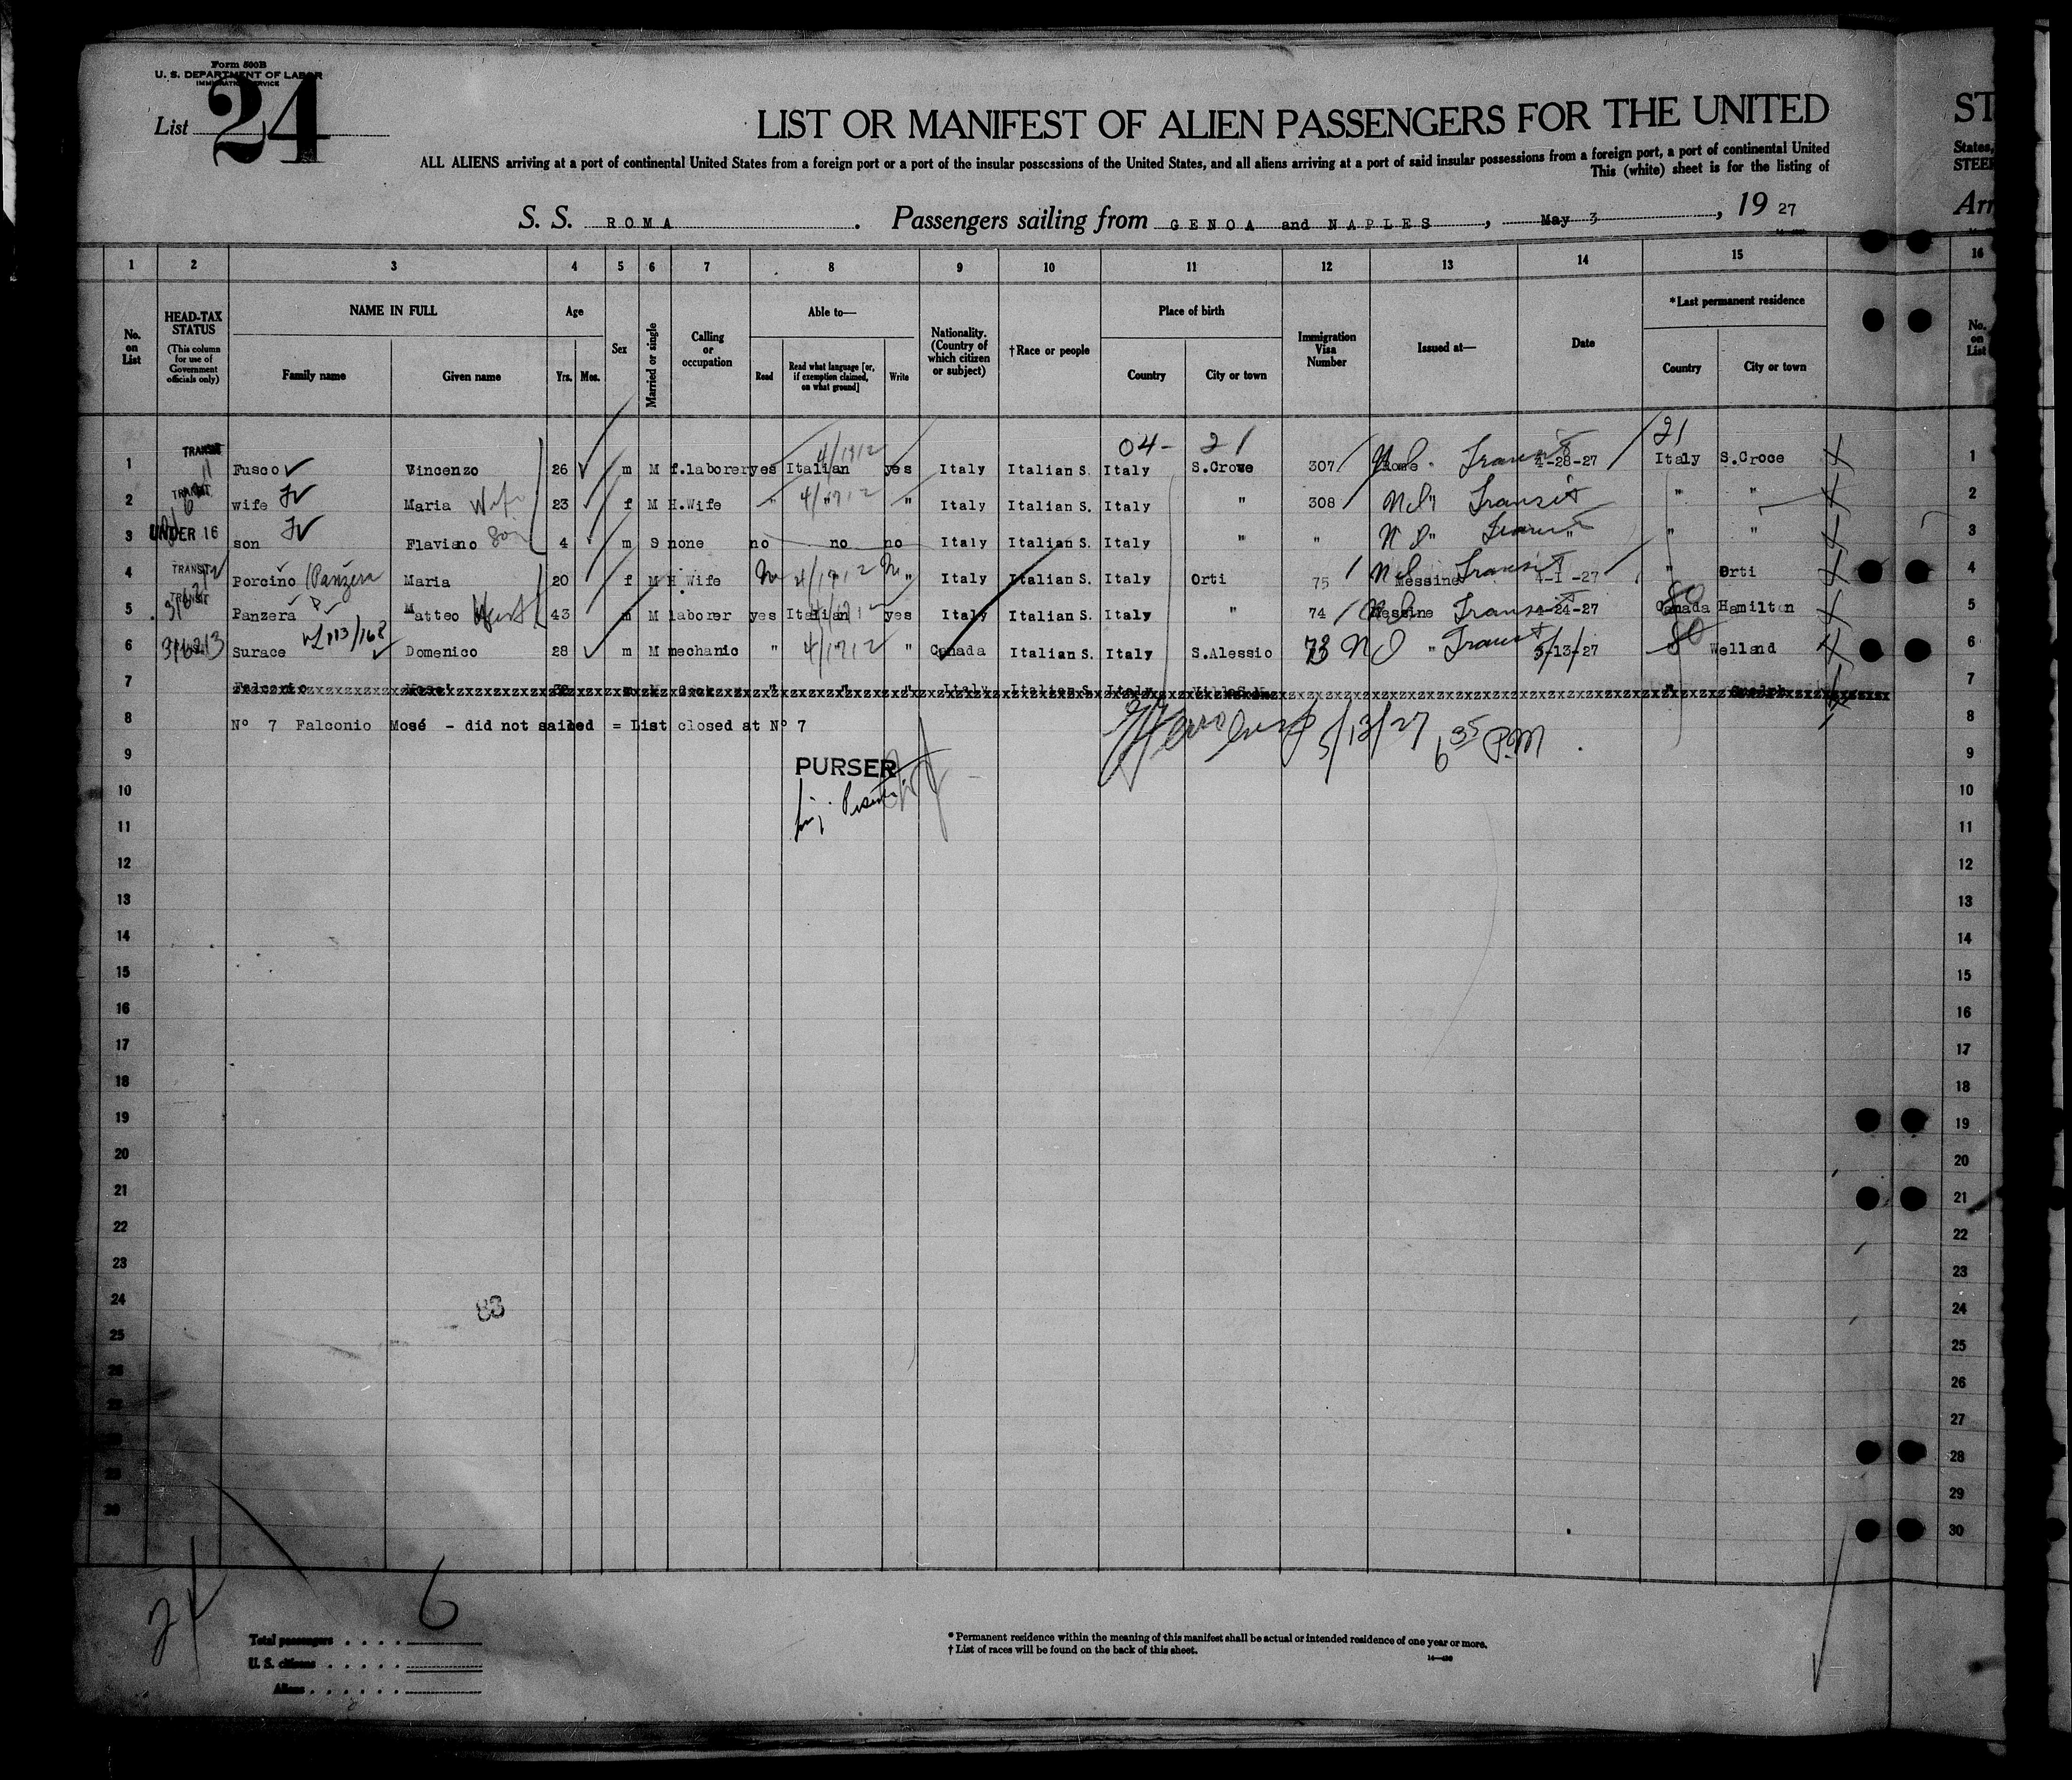 Form 500B
U. S. DEPARTMENT OF LABOR
IMMIGRATION SERVICE
List 24
LIST OR MANIFEST OF ALIEN PASSENGERS FOR THE UNITED ST
ALL ALIENS arriving at a port of continental United States from a foreign port or a port of the insular possessions of the United States, and all aliens arriving at a port of said insular possessions from a foreign port, a port of continental United States,
This (white) sheet is for the listing of
S. S. ROMA. Passengers sailing from GENOA and NAPLES, May 3, 19 27 Arr
1 2 3 4 5 6 7 8 9 10 11 12 13 14 15 16
No. on List
HEAD-TAX STATUS (This column for use of Government officials only)
NAME IN FULL
Family name Given name
Age
Yrs. Mos.
Sex
Married or single
Calling or occupation
Able to—
Read
Read what language [or, if exemption claimed, on what ground]
Write
Nationality. (Country of which citizen or subject)
†Race or people
Place of birth
Country City or town
Immigration Visa Number
Issued at—
Date
*Last permanent residence
Country City or town
No. on List
04- 21 21
1 TRANSIT Fusco Vincenzo 26 m M f.laborer yes Italian yes Italy Italian S. Italy S.Croce 307 Rome Transit 4-28-27 Italy S.Croce 1
2 TRANSIT wife Maria Wife 23 f M H.Wife " " " Italy Italian S. Italy " 308 " Transit " " 2
3 UNDER 16 son Flaviano Son 4 m S none no no no Italy Italian S. Italy " " " Transit " " " 3
4 TRANSIT Porcino (Panzera Maria 20 f M H Wife " Italy Italian S. Italy Orti 75 Messine Transit -27 " Orti 4
5 TRANSIT Panzera Matteo 43 m M laborer yes Italian yes Italy Italian S. Italy " 74 Messine Transit 4-24-27 Canada Hamilton 5
6 Surace Domenico 28 m M mechanic " " Canada Italian S. Italy S.Alessio 73 " Transit 3/13/27 Welland 6
7 Falconio Mosé Italy Italian S. Italy 7
8 Nº 7 Falconio Mosé - did not sailed = List closed at Nº 7 8
5/13/27 6 35 P.M
9 9
PURSER
10 10
11 11
12 12
13 13
14 14
15 15
16 16
17 17
18 18
19 19
20 20
21 21
22 22
23 23
24 83 24
25 25
26 26
27 27
28 28
29 29
30 30
24 6
Total passengers
U. S. citizens
Aliens
* Permanent residence within the meaning of this manifest shall be actual or intended residence of one year or more.
† List of races will be found on the back of this sheet.